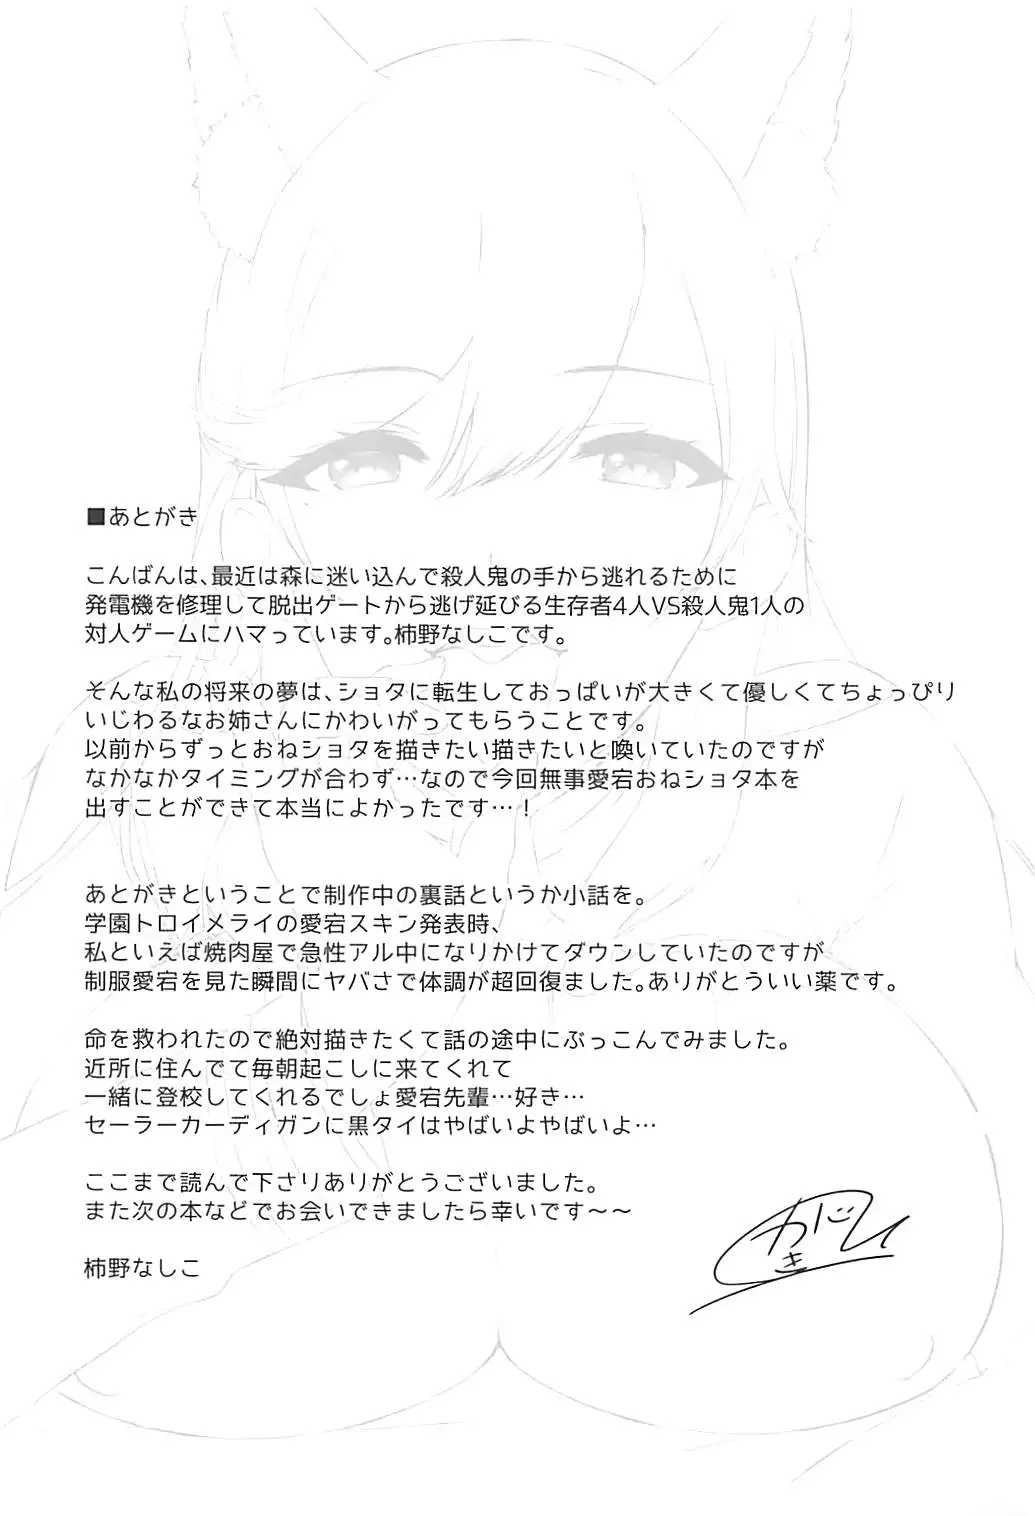 ■あとがき
こんばんは、最近は森に迷い込んで殺人鬼の手から逃れるために
発電機を修理して脱出ゲートから逃げ延びる生存者4人VS殺人鬼1人の
対人ゲームにハマっています。柿野なしこです。
そんな私の将来の夢は、ショタに転生しておっぱいが大きくて優しくてちょっぴり
いじわるなお姉さんにかわいがってもらうことです。
以前からずっとおねショタを描きたい描きたいと喚いていたのですが
なかなかタイミングが合わず…なので今回無事愛宕おねショタ本を
出すことができて本当によかったです…！
あとがきということで制作中の裏話というか小話を。
学園トロイメライの愛宕スキン発表時、
私といえば焼肉屋で急性アル中になりかけてダウンしていたのですが
制服愛宕を見た瞬間にヤバさで体調が超回復ました。ありがとういい薬です。
命を救われたので絶対描きたくて話の途中にぶっこんでみました。
近所に住んでて毎朝起こしに来てくれて
一緒に登校してくれるでしょ愛宕先輩…好き…
セーラーカーディガンに黒タイはやばいよやばいよ…
ここまで読んで下さりありがとうございました。
また次の本などでお会いできましたら幸いです～～
柿野なしこ